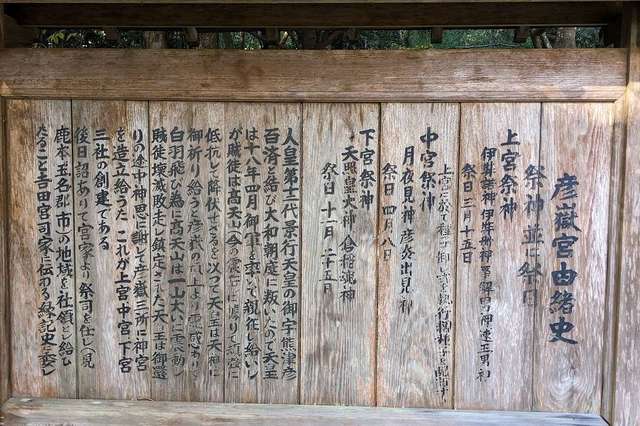 彦嶽宮由緒史
祭神並に祭日
上宮祭神
伊弉諾神 伊弉冊神 事解男神 速玉男神
祭日 三月十五日
上宮に於て種子御 を執行 種子を配 す
中宮祭神
月夜見神 彦火出見 神
祭日 四月八日
下宮祭神
天照皇大神 倉稲魂神
祭日 十一月二十五日
人皇第十二代景行天皇の御宇熊津彦
百済と結び大和朝庭に叛いたので天皇
は十八年四月御軍を率て親征し給いし
が賊徒は高天山今の震岳に拠りて頑強に
低抗して降伏せざるを以って天皇は天神に
御祈り給うと彦嶽の 上より霊感あり
白羽飛び為に高天山は一山大いに震動し
賊徒壊滅敗走し鎮定された天皇は御還
りの途中神恩に謝して彦嶽三所に神宮
を造立給うた これが上宮 中宮 下宮
三社の創建である
後日詔ありて宮家より祭司を任じ 見
鹿本玉名郡(市)の地域を社領とし給ひ
たること吉田宮司家に伝わる縁記史に委し